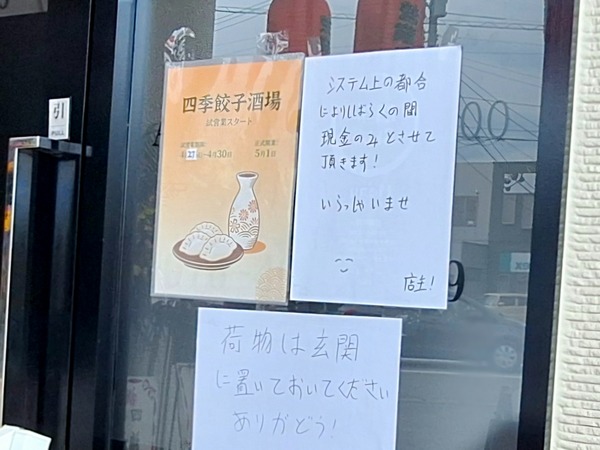 引
PULL
四季餃子酒場
試営業スタート
試営業期間:
正式開業:
4月27日〜4月30日
5月1日
システム上の都合
によりしばらくの間
現金のみとさせて
頂きます!
いらっしゃいませ
店主!
荷物は玄関
に置いておいてください
ありがどう!